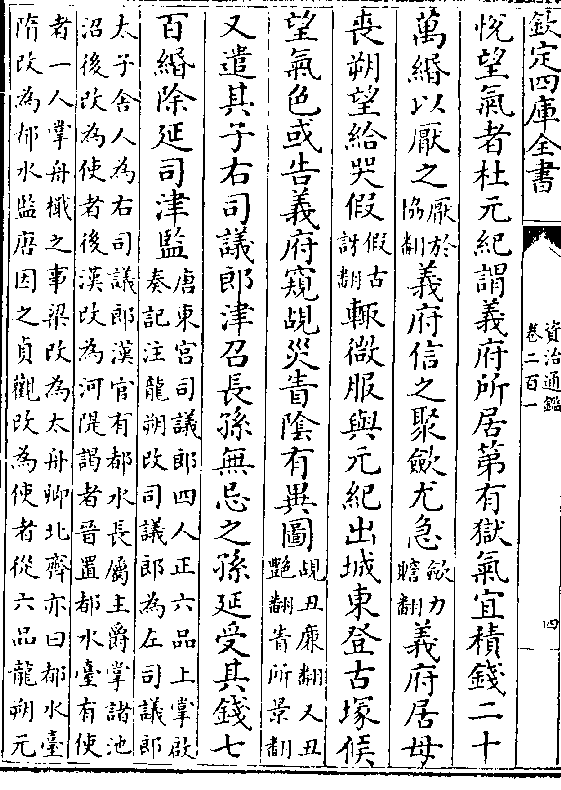 欽定四庫全書
資治通鑑
卷二百一
四
悅望氣者杜元紀謂義府所居第有獄氣宜積錢二十
萬緡以厭之
厭於
協翻
義府信之聚斂尤急
斂力
贍翻
義府居母
喪朔望給哭假
假古
訝翻
輒微服與元紀出城東登古塚候
望氣色或告義府窺覘災眚陰有異圖
覘丑廉翻又丑
艶翻眚所景翻
又遣其子右司議郎津召長孫無忌之孫延受其錢七
百緡除延司津監
唐東宮司議郎四人正六品上掌啟
奏記注龍朔改司議郎為左司議郎
太子舍人為右司議郎漢官有都水長屬主爵掌諸池
沼後改為使者後漢改為河隄謁者晉置都水臺有使
者一人掌舟檝之事梁改為太舟卿北齊亦曰都水臺
隋改為都水監唐因之貞觀改為使者從六品龍朔元